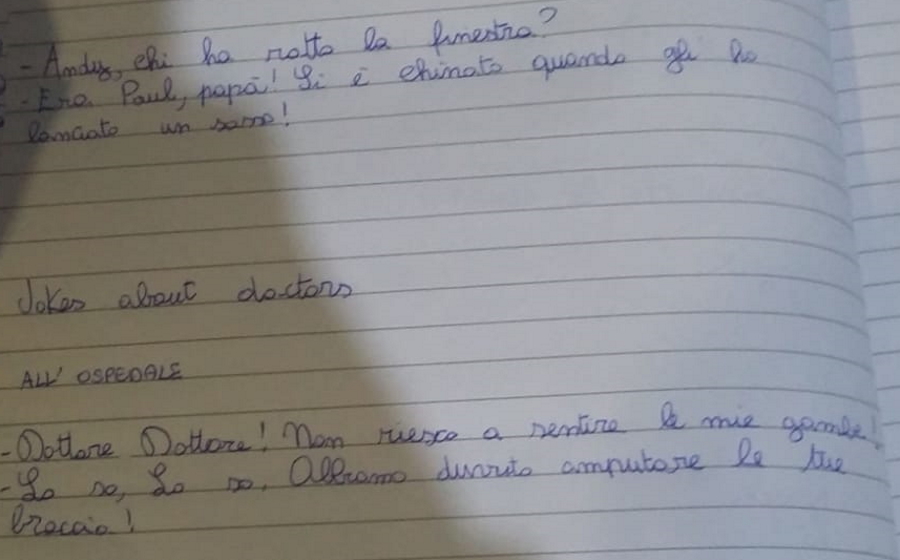 - Andy, chi ha rotto la finestra?
- Era Paul, papà! Si è chinato quando gli ho
lanciato un sasso!
Jokes about doctors
ALL' OSPEDALE
- Dottore Dottore! Non riesco a sentire le mie gambe!
- Lo so, Lo so. Abbiamo dovuto amputare le tue
braccia!